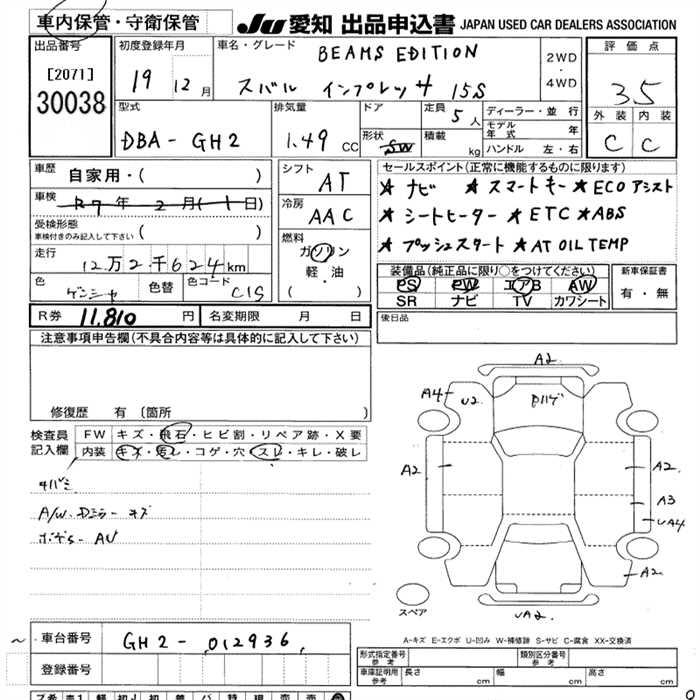 車内保管・守衛保管
JU 愛知 出品申込書 JAPAN USED CAR DEALERS ASSOCIATION
出品番号
[2071]
30038
初度登録年月
19 12月
車名・グレード
BEAMS EDITION
スバル インプレッサ 15S
2WD
・
4WD
評価点
3.5
外装 内装
C C
型式
DBA-GH2
排気量
1.49 CC
ドア
形状
SW
定員 5人
積載 kg
ディーラー・並行
モデル年式 年
ハンドル 左・右
車歴
自家用・( )
車検
R7年2月(1日)
受検形態
車検付きのみ記入して下さい ( )
走行
12万2千624km
色
ゲンシャ
色替
色コード
C1S
シフト
AT
冷房
AAC
燃料
ガソリン
軽・油
( )
セールスポイント(正常に機能するものに限ります)
★ナビ ★スマートキー ★ECOアシスト
★シートヒーター ★ETC ★ABS
★プッシュスタート ★AT OIL TEMP
装備品(純正品に限り○をつけてください)
PS PW エアB AW
SR ナビ TV カワシート
新車保証書
有・無
R券 11,810 円
名変期限 月 日
後日品
注意事項申告欄(不具合内容等は具体的に記入して下さい)
修復歴 有 〔箇所 〕
検査員記入欄
FW キズ・飛石・ヒビ割・リペア跡・X要
内装 キズ・汚レ・コゲ・穴・スレ・キレ・破レ
A/W.Dミラー キズ
A2
A4
U2
A2
A2
A3
UA4
A2
UA2
スペア
A-キズ E-エクボ U-凹み W-補修跡 S-サビ C-腐食 XX-交換済
車台番号
GH2-012936
登録番号
型式指定番号
参考
類別区分番号
参考
車庫証明用
参考
長さ cm 幅 cm 高さ cm